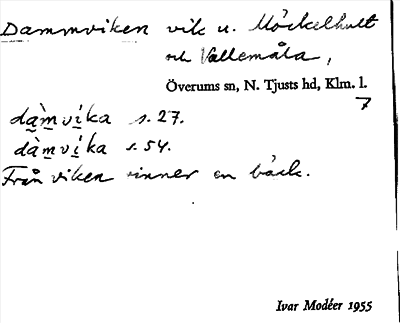 Dammviken vik u. Möckelhult
och Vallemåla,
Överums sn, N. Tjusts hd, Klm. l.
7
dàm̲vi̲ka s. 27.
dàm̲vi̲ka s. 54.
Från viken rinner en bäck.
Ivar Modéer 1955